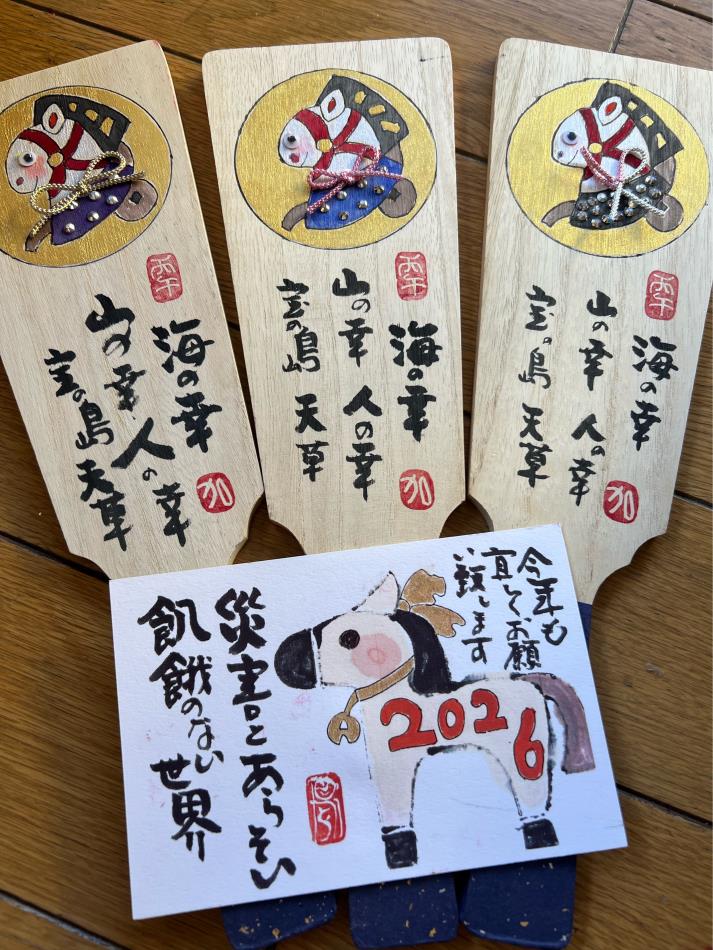 丙午
海の幸
山の幸 人の幸
宝の島 天草
加
丙午
海の幸
山の幸 人の幸
宝の島 天草
加
丙午
海の幸
山の幸 人の幸
宝の島 天草
加
今年も
宜しくお願
い致します
2026
災害とあらそい
飢餓のない世界